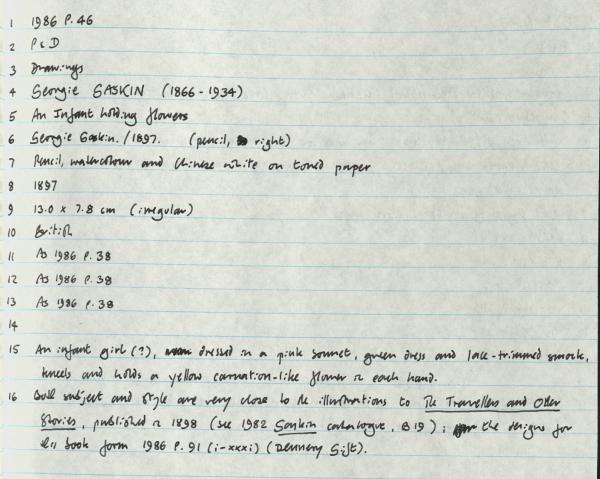 1 1986 P.46
2 P & D
3 Drawings
4 Georgie GASKIN (1866-1934)
5 An Infant holding flowers
6 Georgie Gaskin. / 1897. (pencil, right)
7 Pencil, watercolour and Chinese white on toned paper
8 1897
9 13.0 x 7.8 cm (irregular)
10 British
11 As 1986 P.38
12 As 1986 P.38
13 As 1986 P.38
14
15 An infant girl (?), dressed in a pink bonnet, green dress and lace-trimmed smock,
kneels and holds a yellow carnation-like flower in each hand.
16 Both subject and style are very close to the illustrations to The Travellers and Other
Stories, published in 1898 (see 1982 Gaskin catalogue, B19); the designs for
this book form 1986 P.91 (i-xxxi) (Dennery Gift).